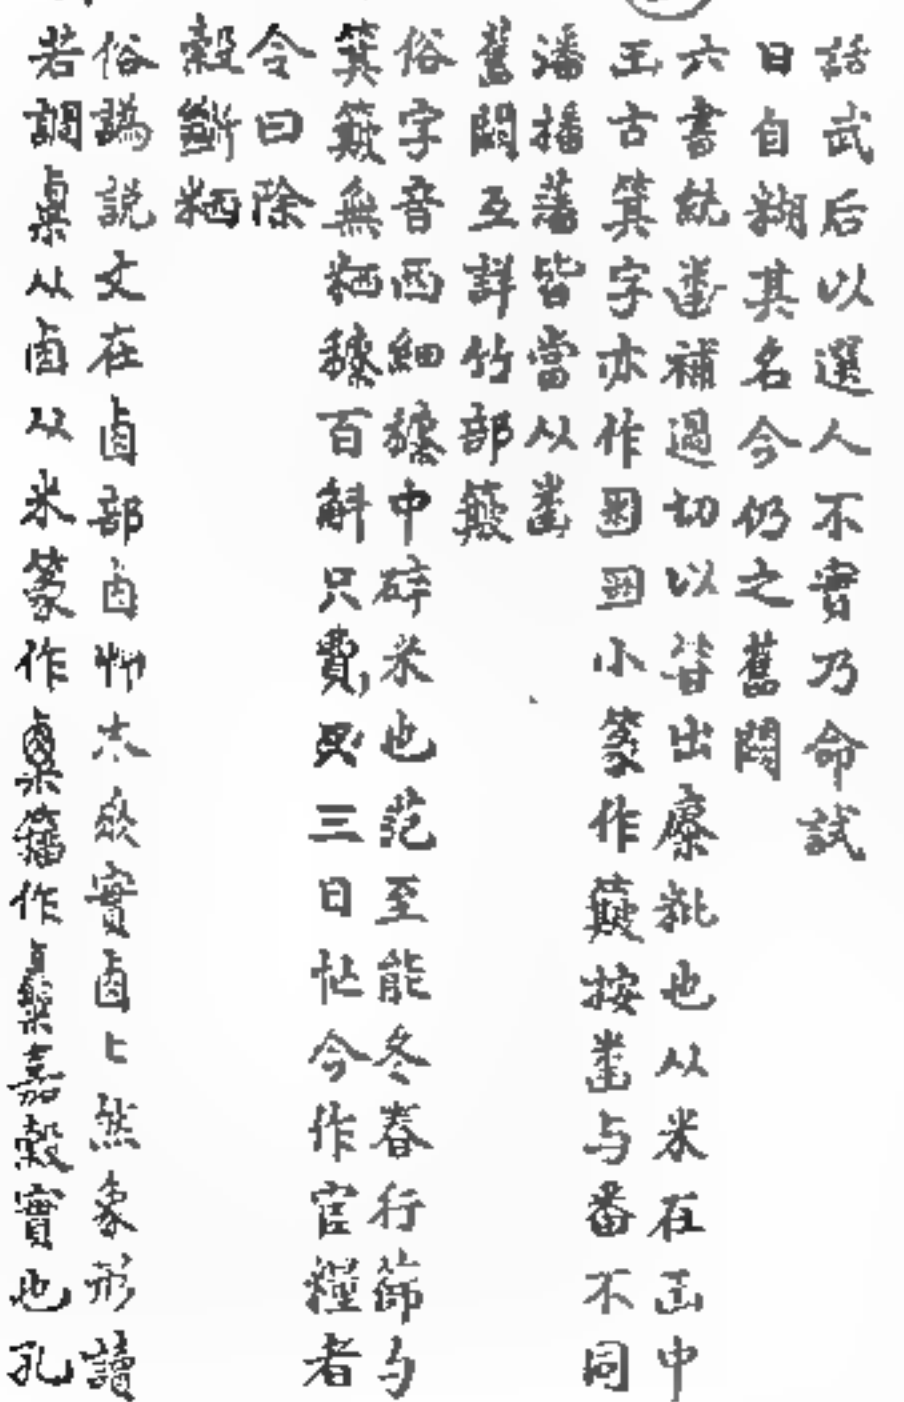 話武后以選人不實乃命試
日自糊其名今仍之舊闕
六書統𡍮補過切以箕出麋粃也从米在𠙽中
𠙽古箕字亦作𡇈𡇈小篆作簸按𡍮与番不同
潘播藩皆當从𡍮
舊闕互詳竹部簸
俗字音西細糠中碎米也范至能冬舂行篩与
箕簸無粞糠百斛只費三日忙今作官糧者
令曰除
穀斷粞
俗譌説文在𠧪部𠧪艸木𠂹實𠧪〻然象形讀
若調㮚从𠧪从米篆作籀作嘉穀實也孔